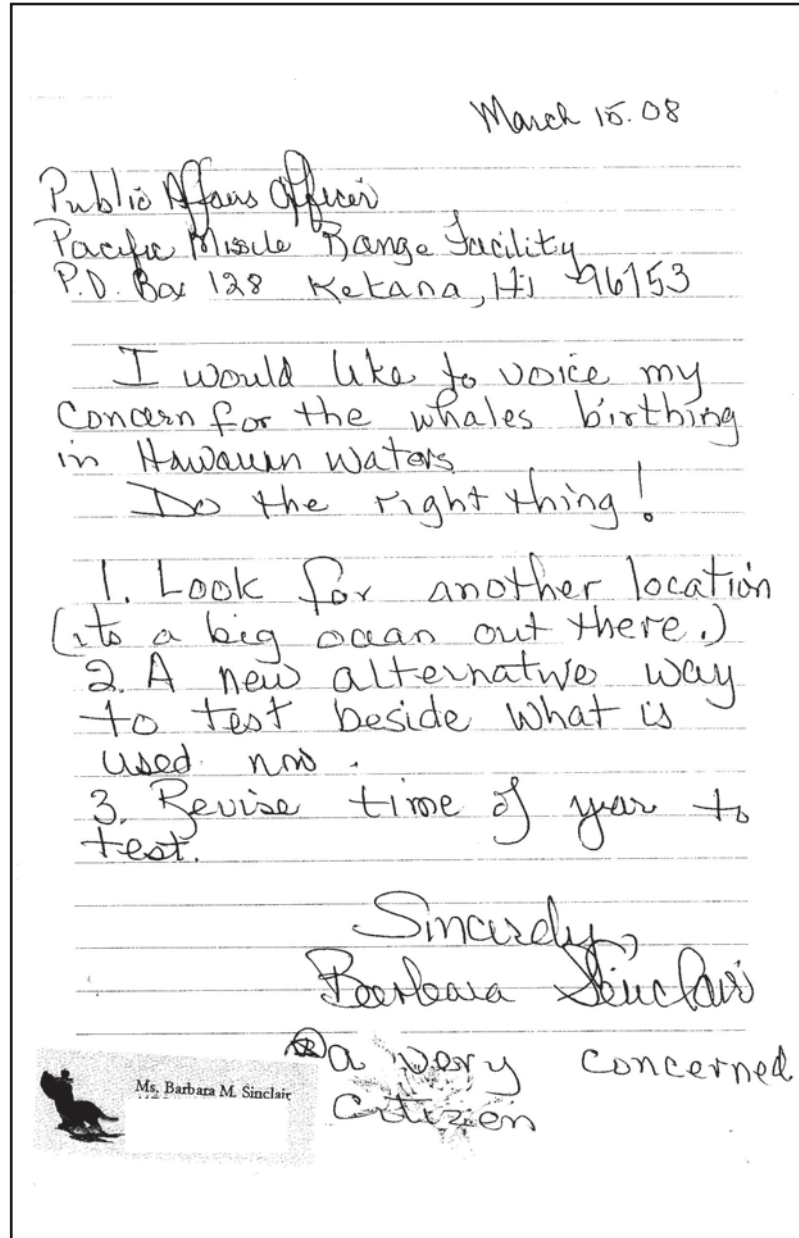 March 15.08
Public Affairs Officer
Pacific Missile Range Facility
P.O. Box 128 Kekaha, Hi 96753
I would like to voice my
concern for the whales birthing
in Hawaiian waters
Do the right thing!
1. Look for another location
(its a big ocean out there.)
2. A new alternative way
to test beside what is
used now.
3. Revise time of year to
test.
Sincerely,
Barbara Sinclair
a very concerned
citizen
Ms. Barbara M. Sinclair